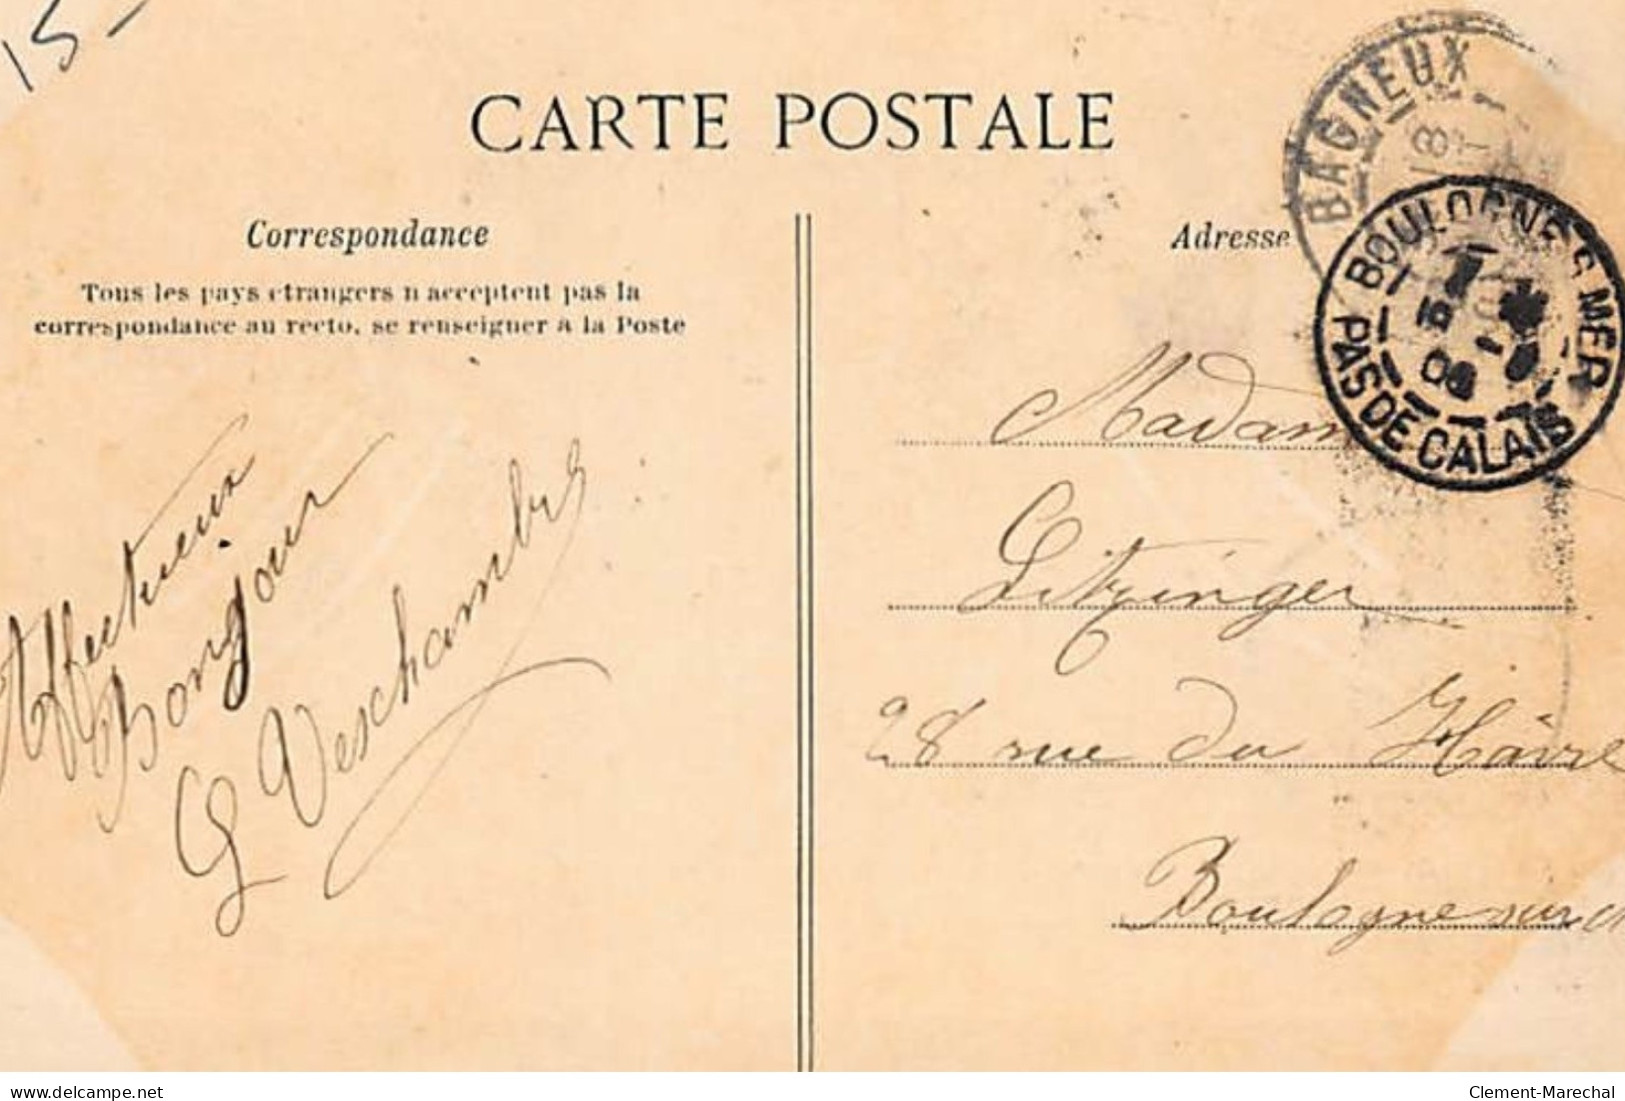 15-
CARTE POSTALE
BAGNEUX
18
BOULOGNE S MER
PAS DE CALAIS
Correspondance
Adresse
Tous les pays etrangers n acceptent pas la
correspondance au recto, se renseigner a la Poste
Affectueux
Bonjour
G Veschambre
Madam
Litzinger
28 rue du Hâvre
Boulogne sur
delcampe.net
Clement-Marechal